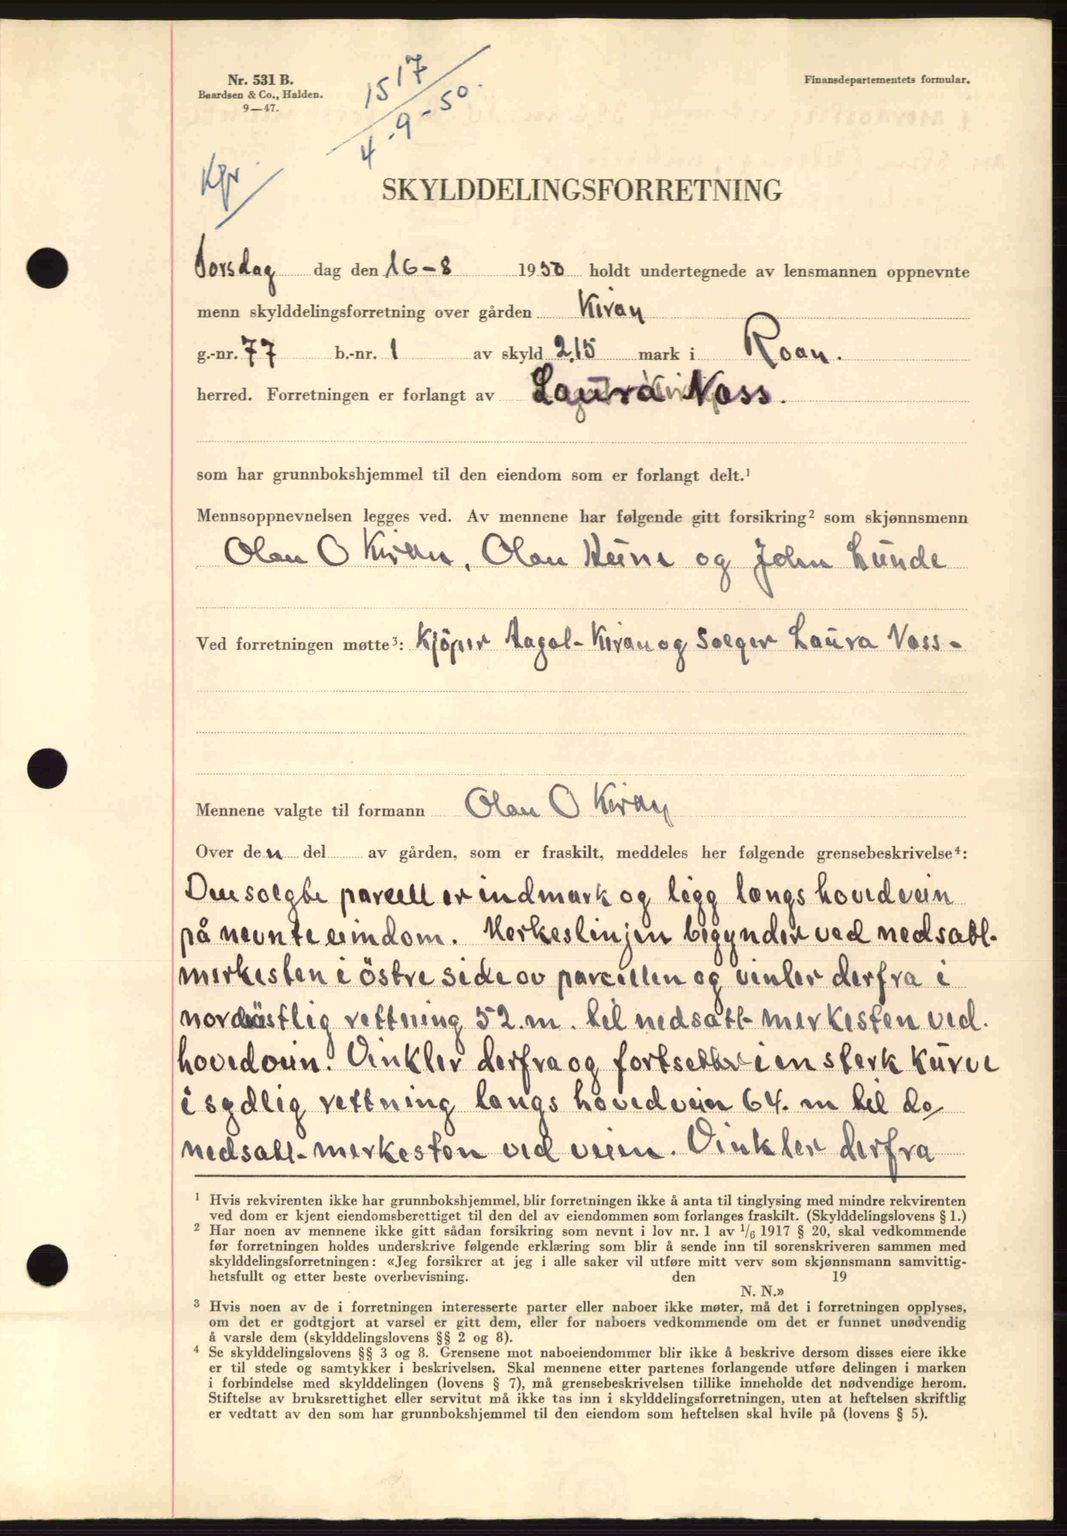 Nr. 531 B.
Baardsen & Co., Halden.
9—47.
1517
4-9-50.
Finansdepartementets formular.
Kfr.
SKYLDDELINGSFORRETNING
Torsdag dag den 16-8 1950 holdt undertegnede av lensmannen oppnevnte
menn skylddelingsforretning over gården Kiran
g.-nr. 77 b.-nr. 1 av skyld 2,15 mark i Roan.
herred. Forretningen er forlangt av Laura Voss.
som har grunnbokshjemmel til den eiendom som er forlangt delt.¹
Mennsoppnevnelsen legges ved. Av mennene har følgende gitt forsikring² som skjønnsmenn
Olan O Kiran, Olan Heine og John Lunde
Ved forretningen møtte³: Kjöper Aagot Kiran og Selger Laura Voss-
Mennene valgte til formann Olan O Kiran
Over den del av gården, som er fraskilt, meddeles her følgende grensebeskrivelse⁴:
Den solgte parcell er indmark og ligg langs hovedvein
på nevnte eiendom. Merkeslinjen begynder ved nedsatt-
merkesten i östre side av parcellen og vinler derfra i
nordöstlig rettning 52.m. til nedsatt- merkesten ved.
hovedvein. Vinkler derfra og fortsetter i en sterk kurve
i sydlig rettning langs hovedveien 64. m til do
nedsatt-merkesten ved veien. Vinkler derfra
¹ Hvis rekvirenten ikke har grunnbokshjemmel, blir forretningen ikke å anta til tinglysing med mindre rekvirenten
ved dom er kjent eiendomsberettiget til den del av eiendommen som forlanges fraskilt. (Skylddelingslovens § 1.)
² Har noen av mennene ikke gitt sådan forsikring som nevnt i lov nr. 1 av 1/6 1917 § 20, skal vedkommende
før forretningen holdes underskrive følgende erklæring som blir å sende inn til sorenskriveren sammen med
skylddelingsforretningen: «Jeg forsikrer at jeg i alle saker vil utføre mitt verv som skjønnsmann samvittig-
hetsfullt og etter beste overbevisning. den 19
N. N.»
³ Hvis noen av de i forretningen interesserte parter eller naboer ikke møter, må det i forretningen opplyses,
om det er godtgjort at varsel er gitt dem, eller for naboers vedkommende om det er funnet unødvendig
å varsle dem (skylddelingslovens §§ 2 og 8).
⁴ Se skylddelingslovens §§ 3 og 8. Grensene mot naboeiendommer blir ikke å beskrive dersom disses eiere ikke
er til stede og samtykker i beskrivelsen. Skal mennene etter partenes forlangende utføre delingen i marken
i forbindelse med skylddelingen (lovens § 7), må grensebeskrivelsen tillike inneholde det nødvendige herom.
Stiftelse av bruksrettighet eller servitut må ikke tas inn i skylddelingsforretningen, uten at heftelsen skriftlig
er vedtatt av den som har grunnbokshjemmel til den eiendom som heftelsen skal hvile på (lovens § 5).